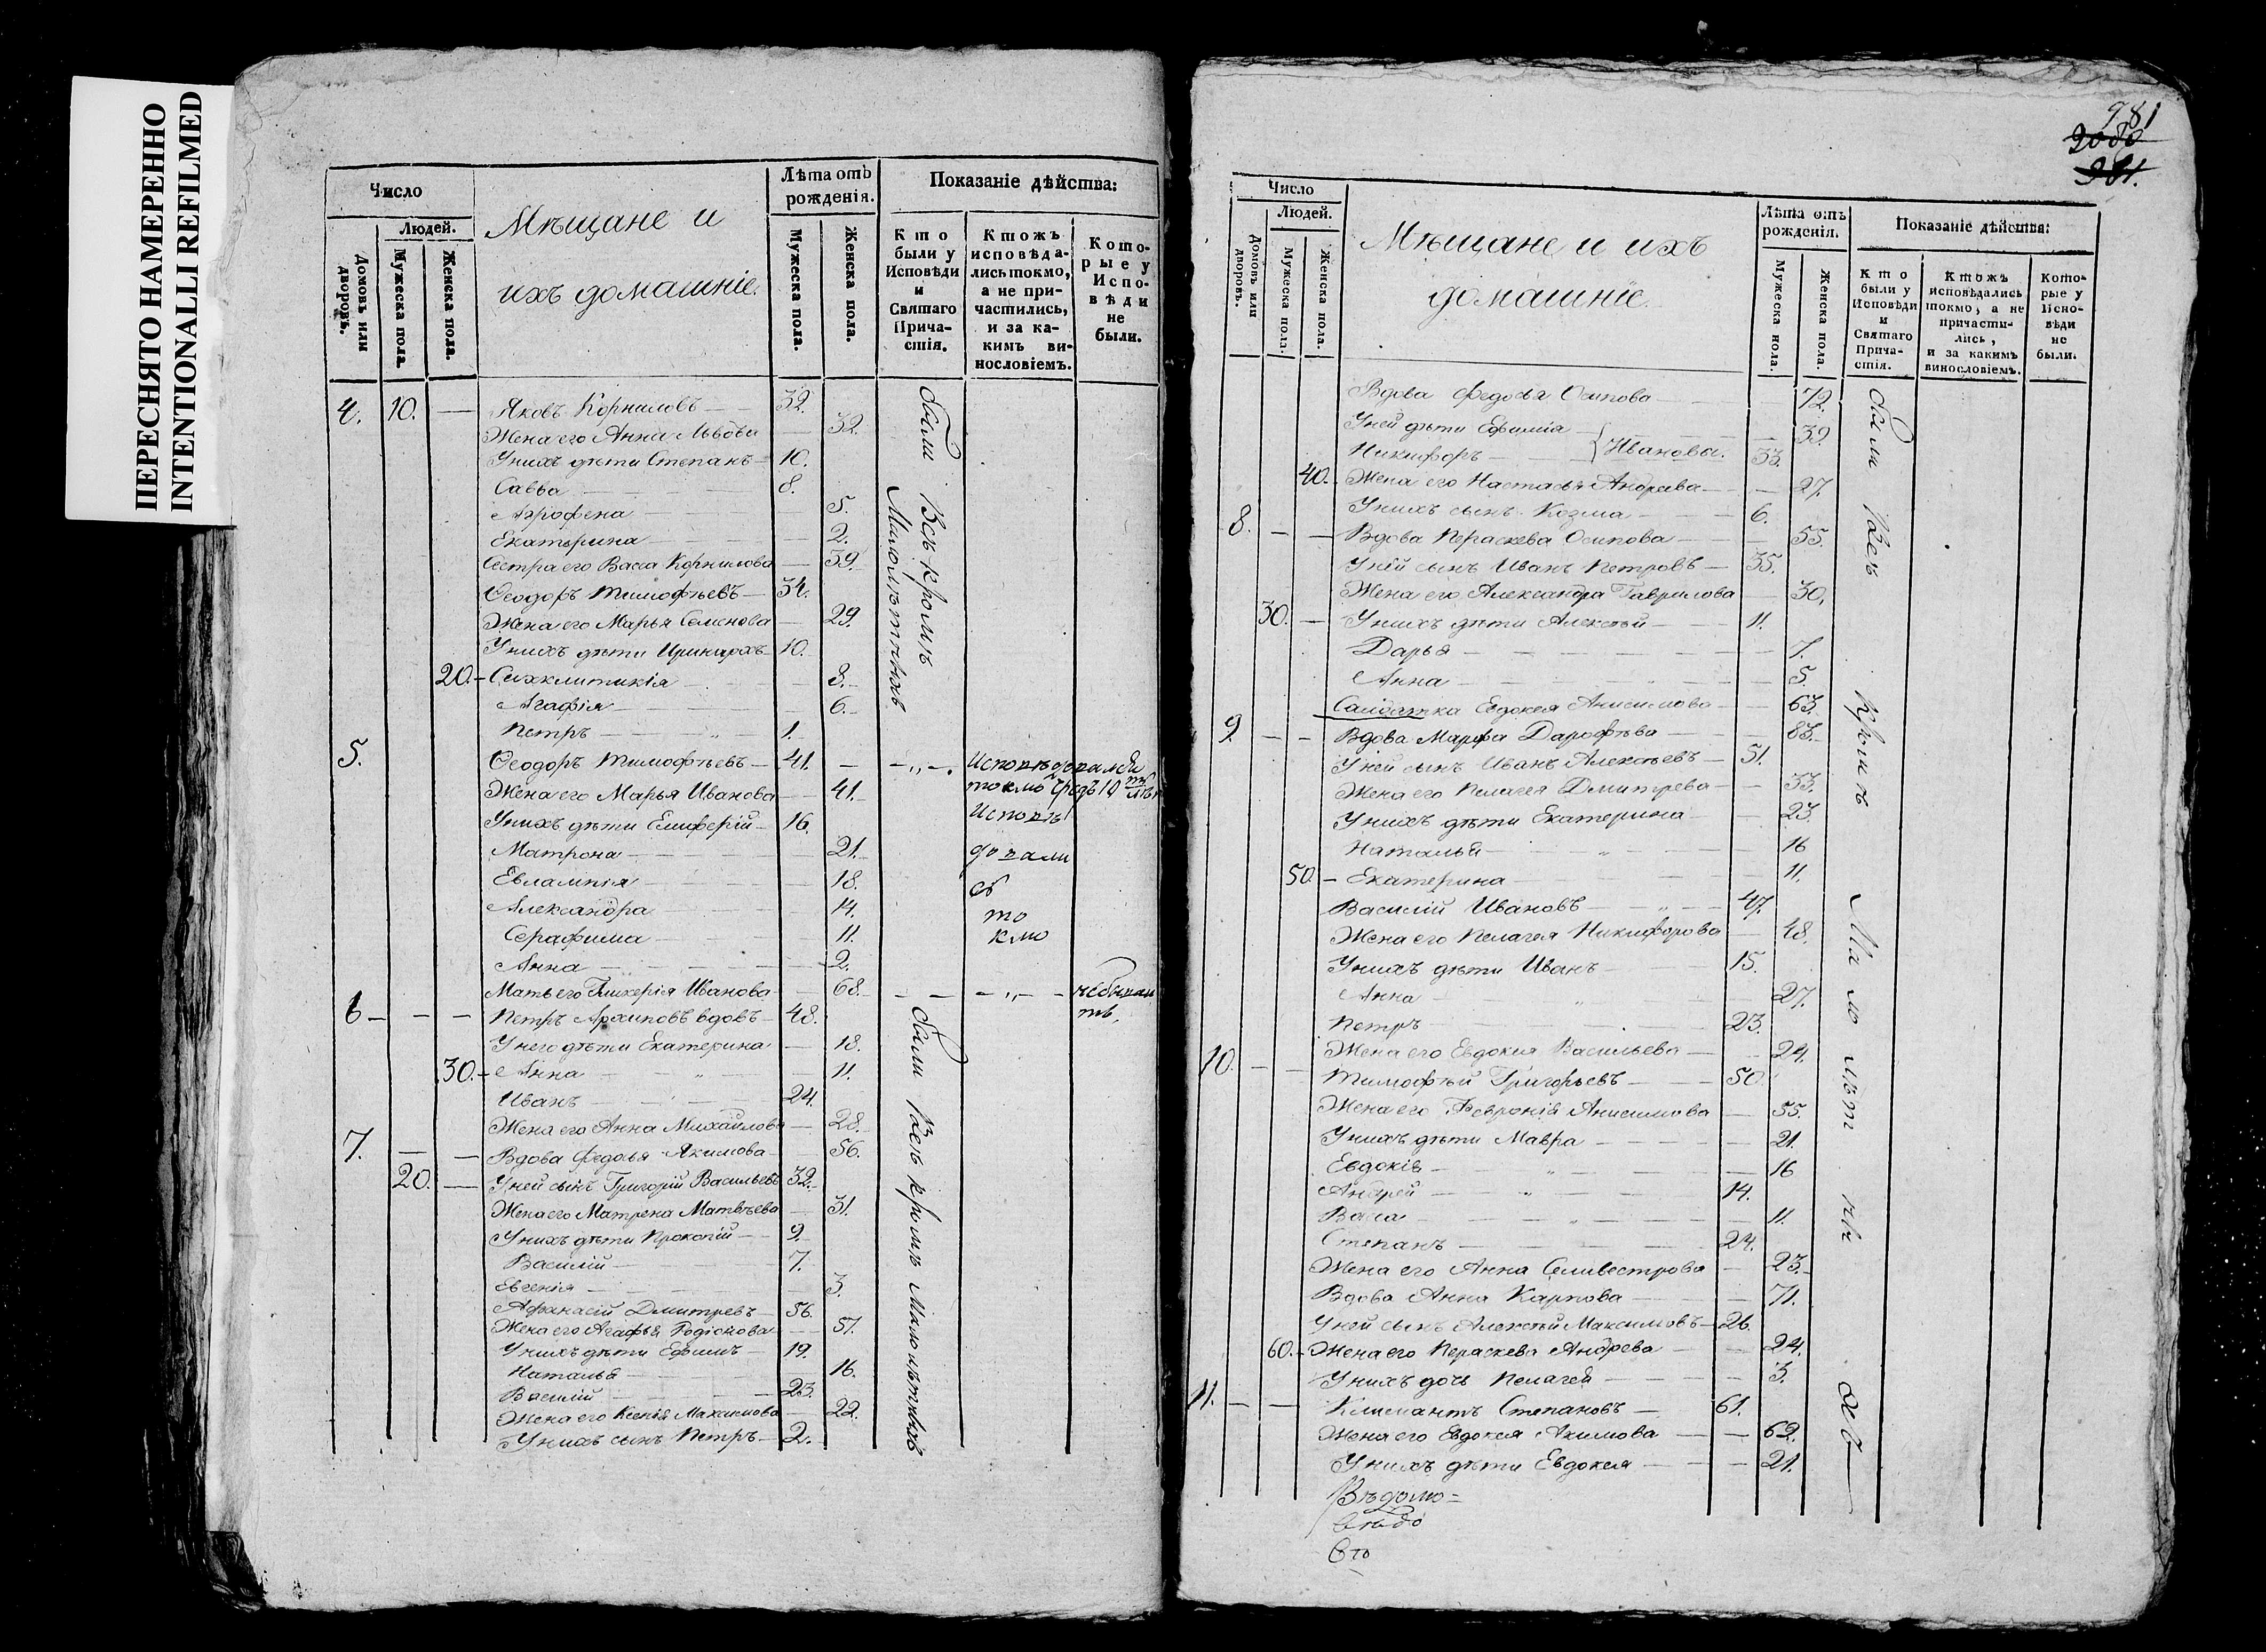 ПЕРЕСНЯТО НАМЕРЕННО
INTENTIONALLI REFILMED
Число
Людей.
Домовъ или дворовъ.
Мужеска пола.
Женска пола.
Мѣщане и
ихъ домашніе.
Лѣта отъ рожденія.
Мужеска пола.
Женска пола.
Показаніе дѣйства:
Кто были у Исповѣди и Святаго Причастія.
Ктожъ исповѣдались токмо, а не причастились, и за какимъ винословіемъ.
Которые у Исповѣди не были.
4. 10. — Яковъ Корниловъ — 32.
Жена его Анна Львова — 32.
У нихъ дѣти Степанъ — 10.
Савва — 8.
Агрофена — 5.
Екатерина — 2.
Сестра его Васса Корнилова — 39.
Ѳеодоръ Тимофѣевъ — 34.
Жена его Марья Семенова — 29.
У нихъ дѣти Иринархъ — 10.
20. — Синклитикія — 8.
Агафія — 6.
Петръ — 1.
были Всѣ кромѣ Малолѣтныхъ
5. Ѳеодоръ Тимофѣевъ — 41. — „ —
Жена его Марья Иванова — 41.
У нихъ дѣти Елифѳерій — 16.
Матрона — 21.
Евлампія — 18.
Александра — 14.
Серафима — 11.
Анна — 2.
Исповѣдовались
токмо
Исповѣ
довали
сь
то
кмо
Мать его Гликерія Иванова — 68. — „ — небывали
6 — — — Петръ Архиповъ вдовъ — 48.
У него дѣти Екатерина — 18.
30. — Анна — „ — 11.
Иванъ — 24.
Жена его Анна Михайлова — 28.
7. — — Вдова Федосья Якимова — 56.
20. — У ней сынъ Григорій Васильевъ 32.
Жена его Матрена Матвѣева — 31.
У нихъ дѣти Прокопій — 9.
Василій — 7.
Евгенія — 3.
Афанасій Дмитревъ — 56.
Жена его Агафья Родіонова — 57.
У нихъ дѣти Ефимъ — 19.
Наталья — 16.
Василій — 23
Жена его Ксенія Максимова — 22.
У нихъ сынъ Петръ — 2.
были Всѣ кромѣ Малолѣтныхъ
981
381.
Число
Людей.
Домовъ или дворовъ.
Мужеска пола.
Женска пола.
Мѣщане и ихъ
домашніе.
Лѣта отъ рожденія.
Мужеска пола.
Женска пола.
Показаніе дѣйства:
Кто были у Исповѣди и Святаго Причастія.
Ктожъ исповѣдались токмо, а не причастились, и за какимъ винословіемъ.
Которые у Исповѣди не были.
Вдова Федосья Осипова — 72.
У ней дѣти Ефимія — 39.
Никифоръ — Ивановы. 33.
40. Жена его Настасья Андреева — 27.
У нихъ сынъ Козма — 6.
8. — — Вдова Пераскева Осипова — 55.
У ней сынъ Иванъ Петровъ — 35.
Жена его Александра Гаврилова 30.
30. — У нихъ дѣти Алексѣй — 11.
Дарья — 7.
Анна — 5.
Салдатка Евдокея Анисимова — 63.
9. — — Вдова Марфа Дарофѣева — 83.
У ней сынъ Иванъ Алексѣевъ — 51.
Жена его Пелагея Дмитрева — 33.
У нихъ дѣти Екатерина — 23.
Наталья — „ — 16
50. — Екатерина — 11.
Василій Ивановъ — „ — 47.
Жена его Пелагея Никифорова — 48.
У нихъ дѣти Иванъ — 15.
Анна — „ — 27.
Петръ — 23.
Жена его Евдокея Васильева — 24.
10. — — Тимофѣй Григорьевъ — 50.
Жена его Февронія Анисимова — 55.
У нихъ дѣти Мавра — 21.
Евдокія — „ — 16
Андрей — „ — 14.
Васса — „ — 11.
Степанъ — 24.
Жена его Анна Селивестрова — 23.
Вдова Анна Карпова — 71.
У ней сынъ Алексѣй Максимовъ — 26.
60. — Жена его Пераскева Андреева — 24.
У нихъ дочь Пелагея — 3.
11. — — Климантъ Степановъ — 61.
Жена его Евдокея Акимова — 62.
У нихъ дѣти Евдокея — 21.
были Всѣ кромѣ Малолѣтныхъ
Вѣдомо=